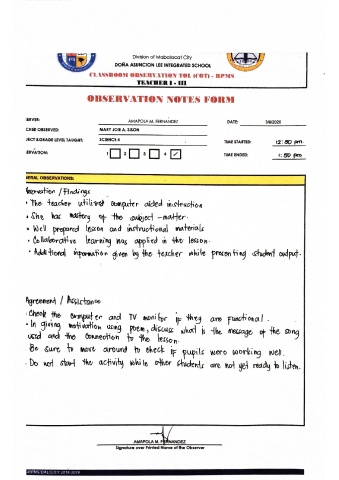 Division of Mabalacat City
DOÑA ASUNCION LEE INTEGRATED SCHOOL
CLASSROOM OBSERVATION TOL (COT) - RPMS
TEACHER I - III
OBSERVATION NOTES FORM
ERVER: AMAPOLA M. FERNANDEZ DATE: 3/6/2020
CHER OBSERVED: MARY JOE A. SISON
JECT & GRADE LEVEL TAUGHT: SCIENCE 4 TIME STARTED: 12:50 pm
ERVATION: 1 2 3 4 ✓ TIME ENDED: 1:50 pm
ERAL OBSERVATIONS:
Observation / Findings
• The teacher utilized computer aided instruction
• She has mastery of the subject-matter.
• Well prepared lesson and instructional materials
• Collaborative learning was applied in the lesson.
• Additional information given by the teacher while presenting student output.
Agreement / Assistance
• Check the computer and TV monitor if they are functional.
• In giving motivation using poem, discuss what is the message of the song
used and the connection to the lesson.
Be sure to move around to check if pupils were working well.
• Do not start the activity while other students are not yet ready to listen.
AMAPOLA M. FERNANDEZ
Signature over Printed Name of the Observer